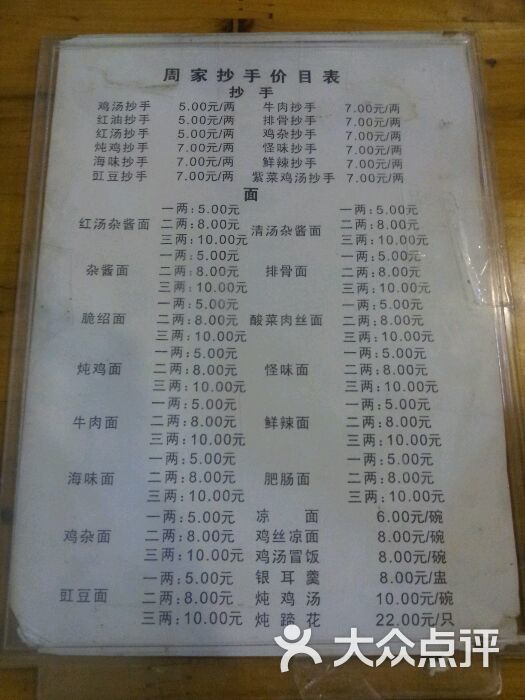 周家抄手价目表
抄 手
鸡汤抄手 5.00元/两 牛肉抄手 7.00元/两
红油抄手 5.00元/两 排骨抄手 7.00元/两
红汤抄手 5.00元/两 鸡杂抄手 7.00元/两
炖鸡抄手 7.00元/两 怪味抄手 7.00元/两
海味抄手 7.00元/两 鲜辣抄手 7.00元/两
豇豆抄手 7.00元/两 紫菜鸡汤抄手 7.00元/两
面
一两:5.00元 一两:5.00元
红汤杂酱面 二两:8.00元 清汤杂酱面 二两:8.00元
三两:10.00元 三两:10.00元
一两:5.00元 一两:5.00元
杂酱面 二两:8.00元 排骨面 二两:8.00元
三两:10.00元 三两:10.00元
一两:5.00元 一两:5.00元
脆绍面 二两:8.00元 酸菜肉丝面 二两:8.00元
三两:10.00元 三两:10.00元
一两:5.00元 一两:5.00元
炖鸡面 二两:8.00元 怪味面 二两:8.00元
三两:10.00元 三两:10.00元
一两:5.00元 一两:5.00元
牛肉面 二两:8.00元 鲜辣面 二两:8.00元
三两:10.00元 三两:10.00元
一两:5.00元 一两:5.00元
海味面 二两:8.00元 肥肠面 二两:8.00元
三两:10.00元 三两:10.00元
一两:5.00元 凉 面 6.00元/碗
鸡杂面 二两:8.00元 鸡丝凉面 8.00元/碗
三两:10.00元 鸡汤冒饭 8.00元/碗
一两:5.00元 银耳羹 8.00元/盅
豇豆面 二两:8.00元 炖鸡汤 10.00元/碗
三两:10.00元 炖蹄花 22.00元/只
大众点评